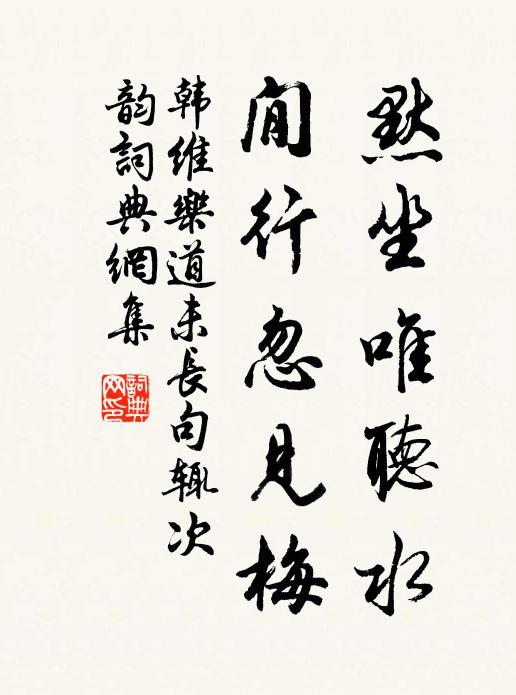 默坐唯聽水
閒行忽見梅
韩維樂道未長句辄次
韵詞典網集
詞典网印